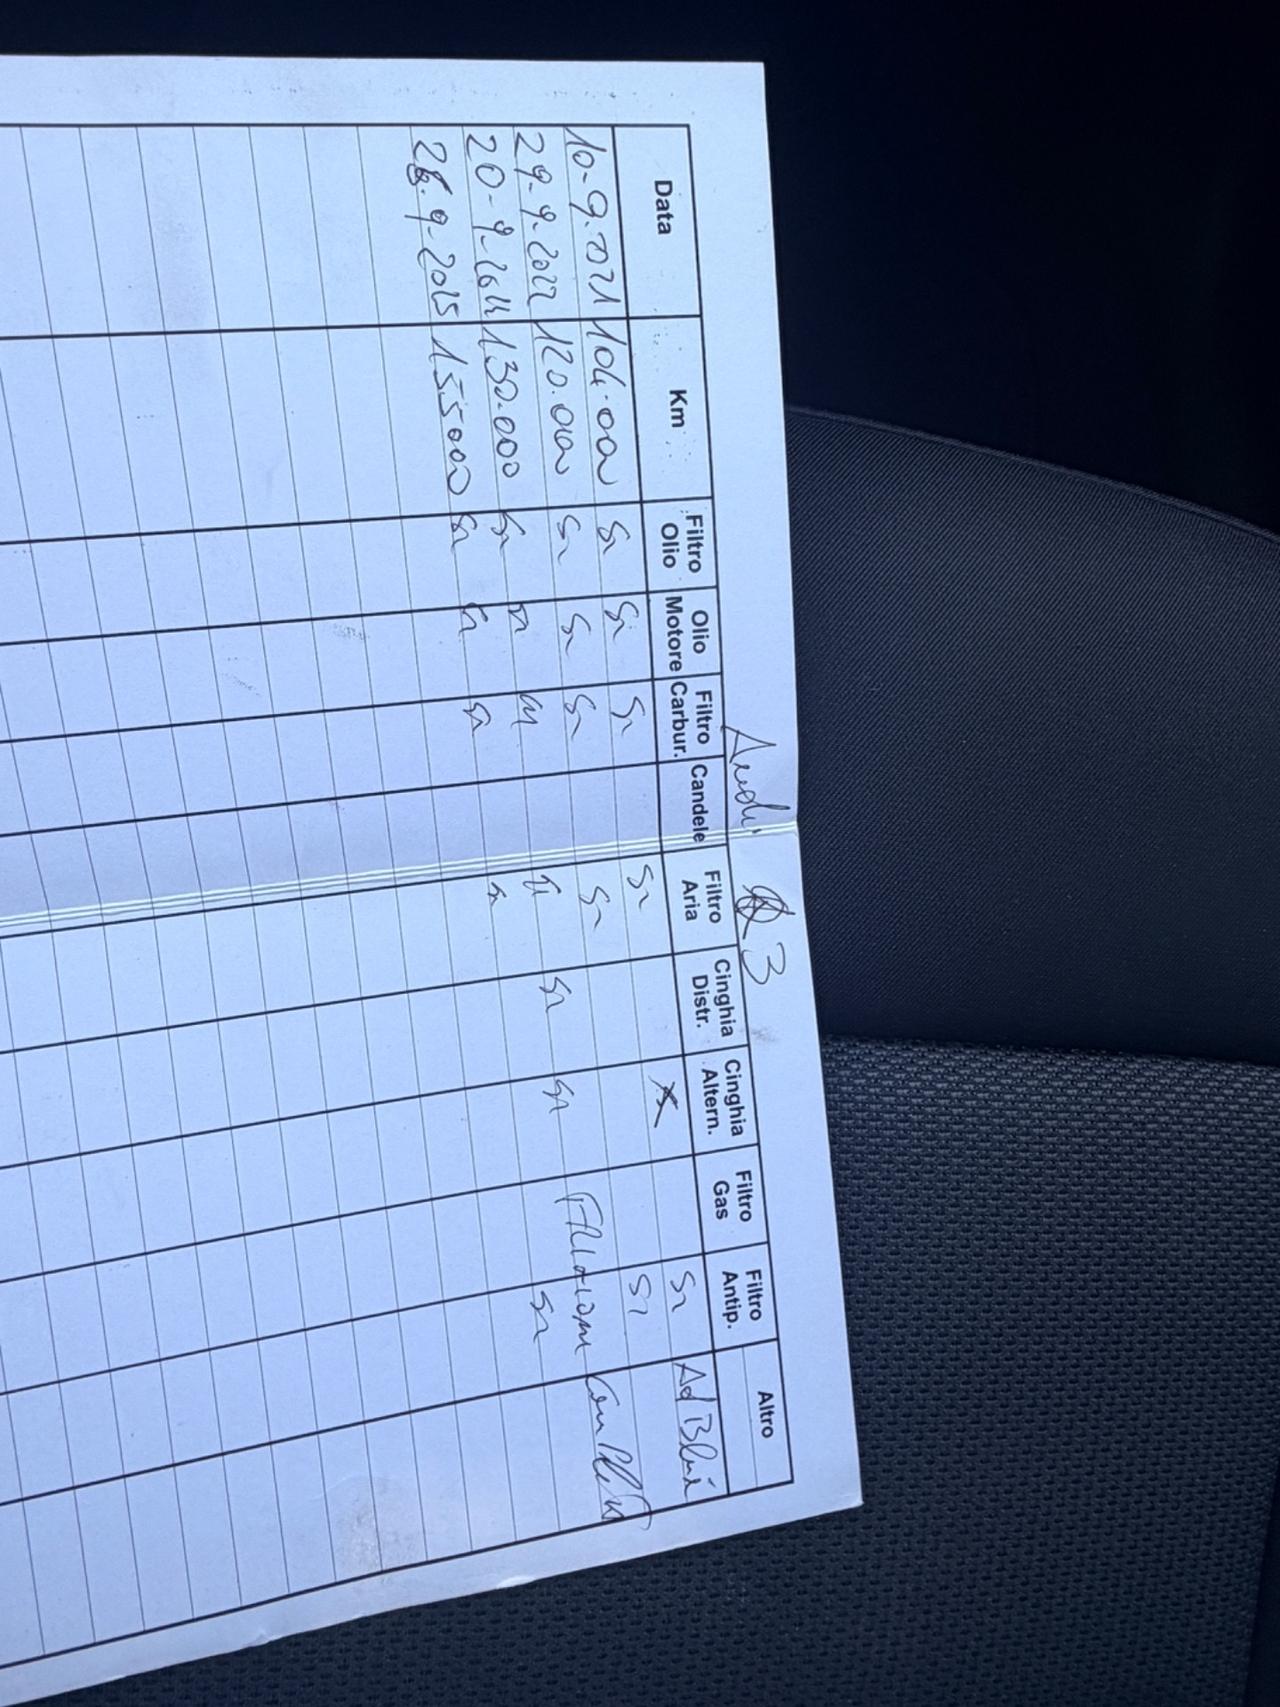 Audi Q3
Data Km Filtro Olio Olio Motore Filtro Carbur. Candele Filtro Aria Cinghia Distr. Cinghia Altern. Filtro Gas Filtro Antip. Altro
10-9.2021 104.000 Si Si Si Si Si Ad Blue
29-9-2022 120.000 Si Si Si Si Si
20-9-2024 130.000 Si Si Si Si Si Si
26.9-2025 155000 Si Si Si Si Si